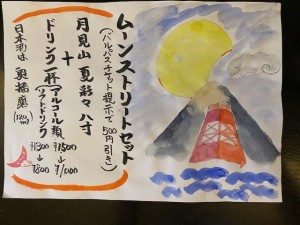 ムーンストリートセット
(バルパスチケット提示で
500円引き)
月見山 夏彩々 八寸
+
ドリンク一杯
アルコール類 ¥1500→¥1000
ソフトドリンク ¥1300→¥800
日本酒は 奥播磨
(120ml)